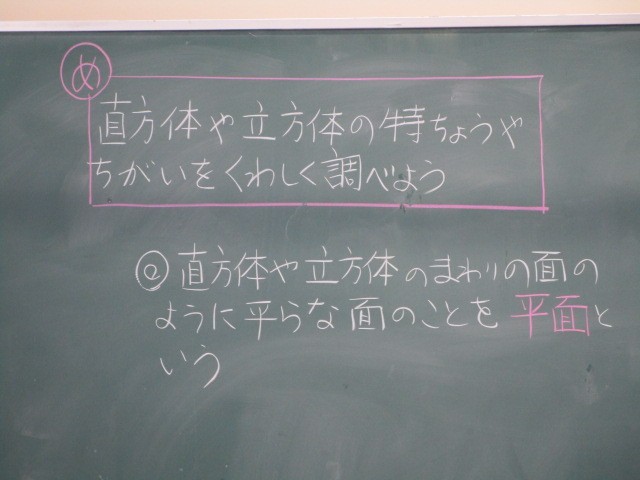 め
直方体や立方体の特ちょうや
ちがいをくわしく調べよう
◎直方体や立方体のまわりの面の
ように平らな面のことを平面と
いう